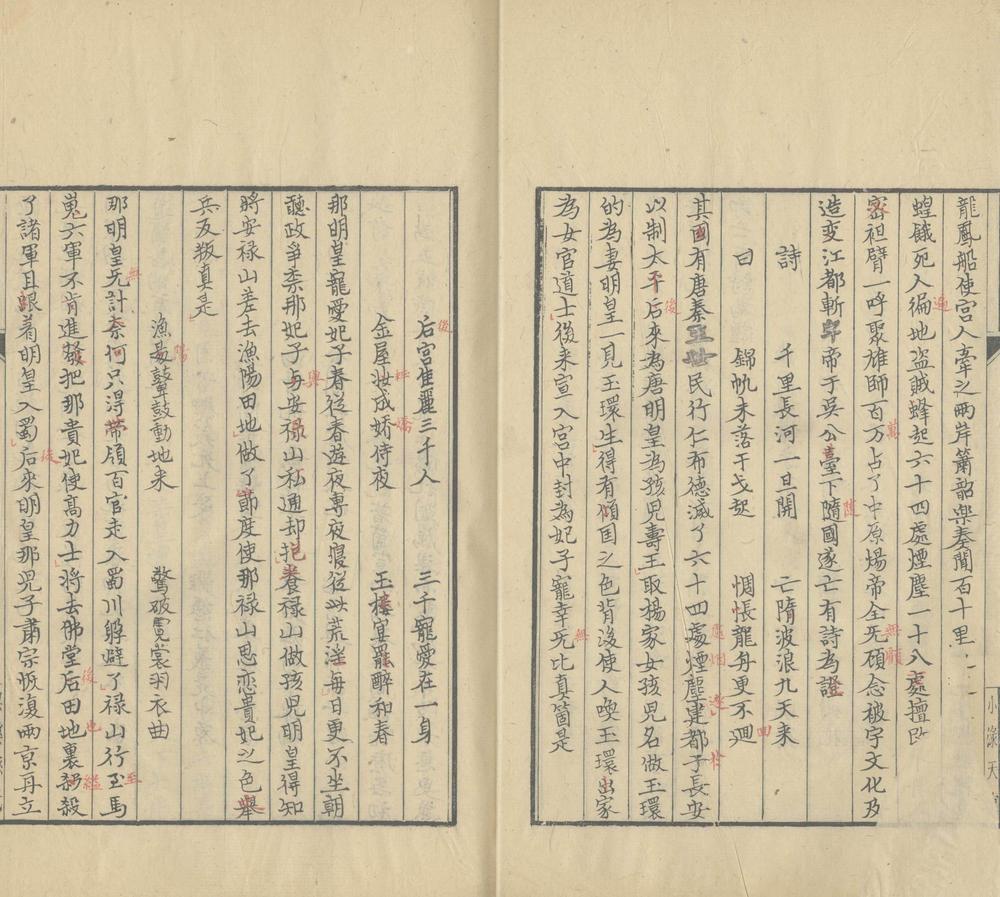 龍鳳船使宮人牽之两岸簫韶樂奏聞百十里
蝗饿死人徧地盗賊蜂起六十四處煙塵一十八處擅改
密袒臂一呼聚雄師百万占了中原煬帝全无碩念被宇文化及
造变江都斬 帝于吳公臺下隨國遂亡有詩為證
詩 千里長河一旦開 亡隋波浪九天来
曰 錦帆未落干戈起 惆悵龍舟更不迴
其國有唐秦王 民行仁布德滅了六十四處煙塵建都于長安
以制太平后來為唐明皇為孩児壽王取楊家女孩児名做玉環
的為妻明皇一見玉環生得有傾囯之色背後使人喚玉環出家
為女官道士後来宣入宮中封為妃子寵幸无比真箇是
后宮佳麗三千人 三千寵愛在一身
金屋妝成娇侍夜 玉樓宴罷醉和春
那明皇寵愛妃子春從春遊夜專夜寢從此荒淫每日更不坐朝
聽政争柰那妃子与安禄山私通却抱養禄山做孩児明皇得知
將安禄山差去漁陽田地做了節度使那禄山思恋貴妃之色舉
兵反叛真是
漁昜鼙鼓動地来 驚破霓裳羽衣曲
那明皇无計柰何只淂帶領百官走入蜀川躲避了禄山行至馬
嵬六軍不肯進發把那貴妃使高力士將去佛堂后田地裏 殺
了諸軍且跟着明皇入蜀后來明皇那児子肅宗恢復两京再立
後
無
陽
嬌
興
也
縊
至
遍
萬
無顧
隨